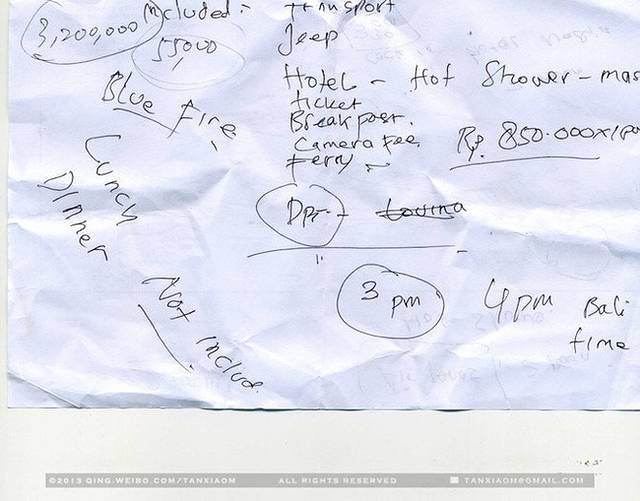 3,200,000
Included: Transport
55,000
Jeep
Hotel - Hot Shower - mas
ticket
Blue Fire
Breakfast.
Camera Fee.
Rp. 850.000 x
Ferry
Lunch
Dinner
Not include.
DPT - Lovina
3 pm
4 pm Bali
time
©2013 QING.WEIBO.COM/TANXIAOM ALL RIGHTS RESERVED TANXIAOM@GMAIL.COM